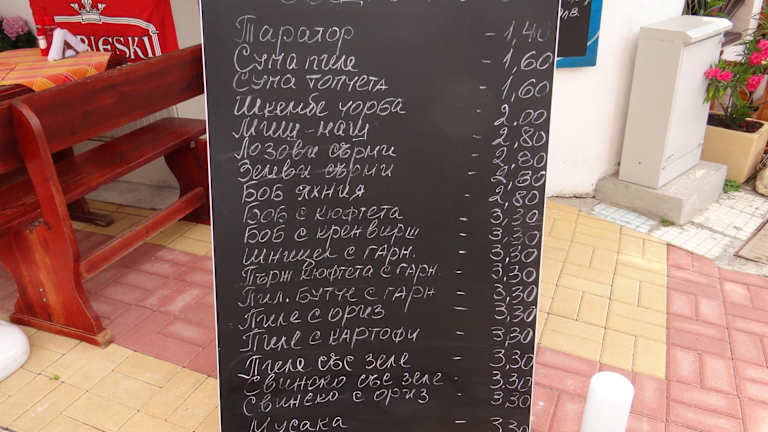 BIESKI
Таратор - 1,40
Супа пиле - 1,60
Супа топчета - 1,60
Шкембе чорба - 2.00
Миш-маш - 2,80
Лозови сърми - 2,80
Зелеви сърми - 2,80
Боб яхния - 2,80
Боб с кюфтета - 3,30
Боб с кренвирш - 3,30
Шницел с гарн. - 3,30
Пърж. кюфтета с гарн. - 3,30
Пил. бутче с гарн - 3,30
Пиле с ориз - 3,30
Пиле с картофи - 3,30
Пиле със зеле - 3,30
Свинско със зеле - 3.30
Свинско с ориз - 3,30
Мусака - 3,30